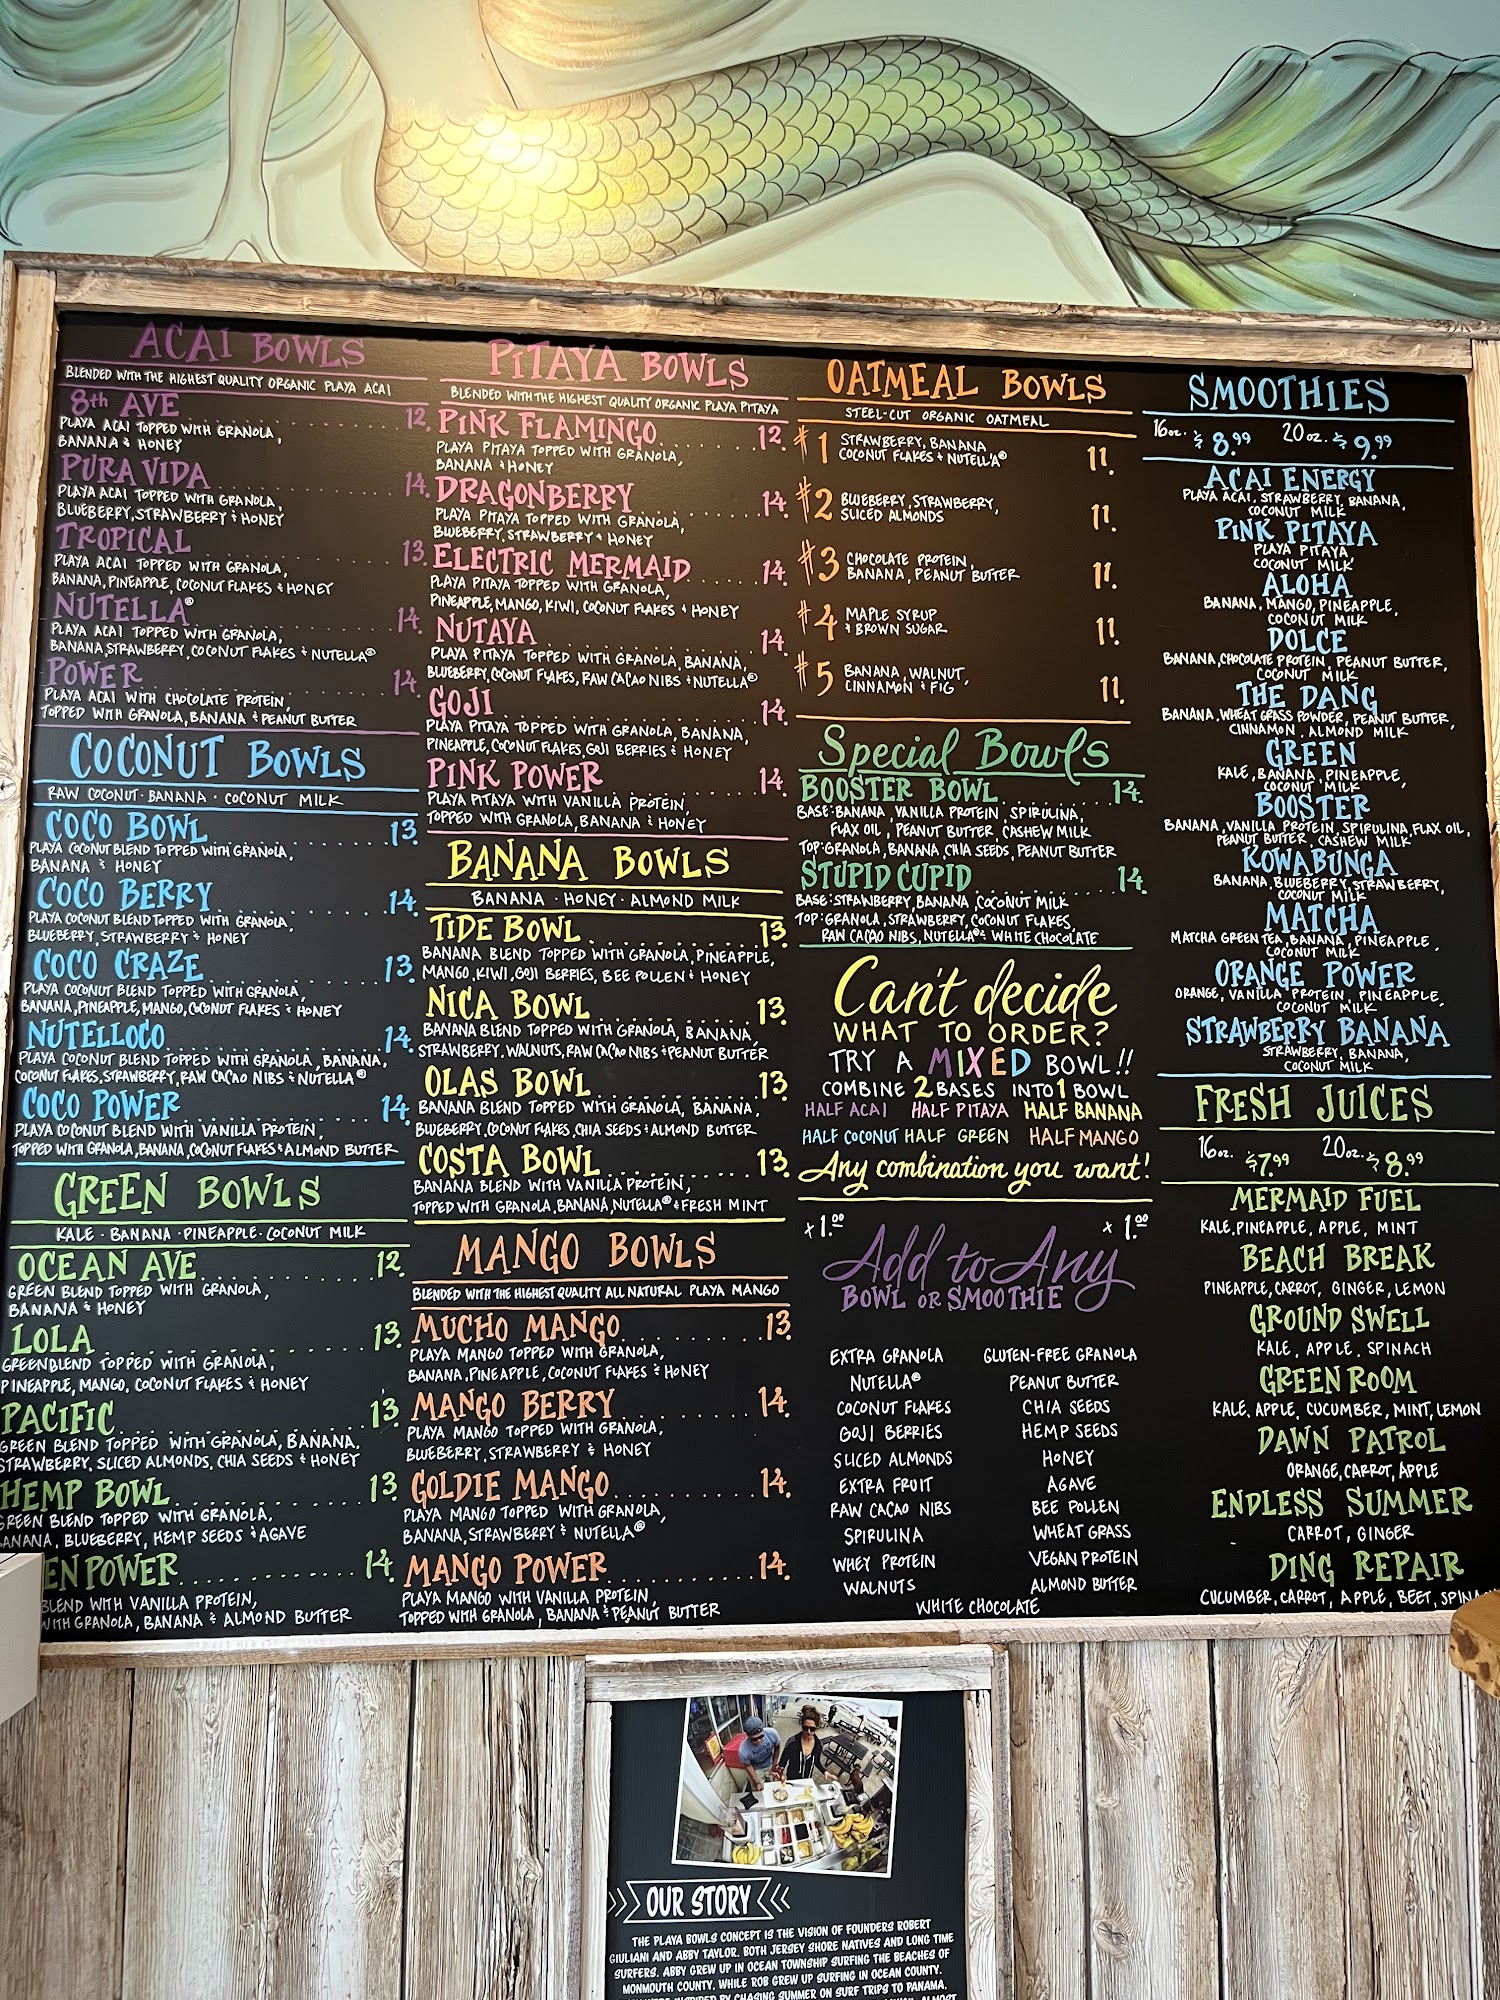 ACAI BOWLS
BLENDED WITH THE HIGHEST QUALITY ORGANIC PLAYA ACAI
8th AVE 12.
PLAYA ACAI TOPPED WITH GRANOLA,
BANANA & HONEY
PURA VIDA 14.
PLAYA ACAI TOPPED WITH GRANOLA,
BLUEBERRY, STRAWBERRY & HONEY
TROPICAL 13.
PLAYA ACAI TOPPED WITH GRANOLA,
BANANA, PINEAPPLE, COCONUT FLAKES & HONEY
NUTELLA® 14.
PLAYA ACAI TOPPED WITH GRANOLA,
BANANA, STRAWBERRY, COCONUT FLAKES & NUTELLA®
POWER 14.
PLAYA ACAI WITH CHOCOLATE PROTEIN,
TOPPED WITH GRANOLA, BANANA & PEANUT BUTTER
COCONUT BOWLS
RAW COCONUT · BANANA · COCONUT MILK
COCO BOWL 13.
PLAYA COCONUT BLEND TOPPED WITH GRANOLA,
BANANA & HONEY
COCO BERRY 14.
PLAYA COCONUT BLEND TOPPED WITH GRANOLA,
BLUEBERRY, STRAWBERRY & HONEY
COCO CRAZE 13.
PLAYA COCONUT BLEND TOPPED WITH GRANOLA,
BANANA, PINEAPPLE, MANGO, COCONUT FLAKES & HONEY
NUTELLOCO 14.
PLAYA COCONUT BLEND TOPPED WITH GRANOLA, BANANA,
COCONUT FLAKES, STRAWBERRY, RAW CACAO NIBS & NUTELLA®
COCO POWER 14.
PLAYA COCONUT BLEND WITH VANILLA PROTEIN,
TOPPED WITH GRANOLA, BANANA, COCONUT FLAKES & ALMOND BUTTER
GREEN BOWLS
KALE · BANANA · PINEAPPLE · COCONUT MILK
OCEAN AVE 12.
GREEN BLEND TOPPED WITH GRANOLA,
BANANA & HONEY
LOLA 13.
GREEN BLEND TOPPED WITH GRANOLA,
PINEAPPLE, MANGO, COCONUT FLAKES & HONEY
PACIFIC 13.
GREEN BLEND TOPPED WITH GRANOLA, BANANA,
STRAWBERRY, SLICED ALMONDS, CHIA SEEDS & HONEY
HEMP BOWL 13.
GREEN BLEND TOPPED WITH GRANOLA,
ANANA, BLUEBERRY, HEMP SEEDS & AGAVE
EN POWER 14.
BLEND WITH VANILLA PROTEIN,
WITH GRANOLA, BANANA & ALMOND BUTTER
PITAYA BOWLS
BLENDED WITH THE HIGHEST QUALITY ORGANIC PLAYA PITAYA
PINK FLAMINGO 12.
PLAYA PITAYA TOPPED WITH GRANOLA,
BANANA & HONEY
DRAGONBERRY 14.
PLAYA PITAYA TOPPED WITH GRANOLA,
BLUEBERRY, STRAWBERRY & HONEY
ELECTRIC MERMAID 14.
PLAYA PITAYA TOPPED WITH GRANOLA,
PINEAPPLE, MANGO, KIWI, COCONUT FLAKES & HONEY
NUTAYA 14.
PLAYA PITAYA TOPPED WITH GRANOLA, BANANA,
BLUEBERRY, COCONUT FLAKES, RAW CACAO NIBS & NUTELLA®
GOJI 14.
PLAYA PITAYA TOPPED WITH GRANOLA, BANANA,
PINEAPPLE, COCONUT FLAKES, GOJI BERRIES & HONEY
PINK POWER 14.
PLAYA PITAYA WITH VANILLA PROTEIN,
TOPPED WITH GRANOLA, BANANA & HONEY
BANANA BOWLS
BANANA · HONEY · ALMOND MILK
TIDE BOWL 13.
BANANA BLEND TOPPED WITH GRANOLA, PINEAPPLE,
MANGO, KIWI, GOJI BERRIES, BEE POLLEN & HONEY
NICA BOWL 13.
BANANA BLEND TOPPED WITH GRANOLA, BANANA,
STRAWBERRY, WALNUTS, RAW CACAO NIBS & PEANUT BUTTER
OLAS BOWL 13.
BANANA BLEND TOPPED WITH GRANOLA, BANANA,
BLUEBERRY, COCONUT FLAKES, CHIA SEEDS & ALMOND BUTTER
COSTA BOWL 13.
BANANA BLEND WITH VANILLA PROTEIN,
TOPPED WITH GRANOLA, BANANA, NUTELLA® & FRESH MINT
MANGO BOWLS
BLENDED WITH THE HIGHEST QUALITY ALL NATURAL PLAYA MANGO
MUCHO MANGO 13.
PLAYA MANGO TOPPED WITH GRANOLA,
BANANA, PINEAPPLE, COCONUT FLAKES & HONEY
MANGO BERRY 14.
PLAYA MANGO TOPPED WITH GRANOLA,
BLUEBERRY, STRAWBERRY & HONEY
GOLDIE MANGO 14.
PLAYA MANGO TOPPED WITH GRANOLA,
BANANA, STRAWBERRY & NUTELLA®
MANGO POWER 14.
PLAYA MANGO WITH VANILLA PROTEIN,
TOPPED WITH GRANOLA, BANANA & PEANUT BUTTER
OATMEAL BOWLS
STEEL-CUT ORGANIC OATMEAL
#1 STRAWBERRY, BANANA 11.
COCONUT FLAKES & NUTELLA®
#2 BLUEBERRY, STRAWBERRY, 11.
SLICED ALMONDS
#3 CHOCOLATE PROTEIN, 11.
BANANA, PEANUT BUTTER
#4 MAPLE SYRUP 11.
& BROWN SUGAR
#5 BANANA, WALNUT, 11.
CINNAMON & FIG
Special Bowls
BOOSTER BOWL 14.
BASE: BANANA, VANILLA PROTEIN, SPIRULINA,
FLAX OIL, PEANUT BUTTER, CASHEW MILK
TOP: GRANOLA, BANANA, CHIA SEEDS, PEANUT BUTTER
STUPID CUPID 14.
BASE: STRAWBERRY, BANANA, COCONUT MILK
TOP: GRANOLA, STRAWBERRY, COCONUT FLAKES,
RAW CACAO NIBS, NUTELLA® & WHITE CHOCOLATE
Can't decide
WHAT TO ORDER?
TRY A MIXED BOWL!!
COMBINE 2 BASES INTO 1 BOWL
HALF ACAI HALF PITAYA HALF BANANA
HALF COCONUT HALF GREEN HALF MANGO
Any combination you want!
+1.00 +1.00
Add to Any
BOWL OR SMOOTHIE
EXTRA GRANOLA GLUTEN-FREE GRANOLA
NUTELLA® PEANUT BUTTER
COCONUT FLAKES CHIA SEEDS
GOJI BERRIES HEMP SEEDS
SLICED ALMONDS HONEY
EXTRA FRUIT AGAVE
RAW CACAO NIBS BEE POLLEN
SPIRULINA WHEAT GRASS
WHEY PROTEIN VEGAN PROTEIN
WALNUTS ALMOND BUTTER
WHITE CHOCOLATE
SMOOTHIES
16oz. $8.99 20oz. $9.99
ACAI ENERGY
PLAYA ACAI, STRAWBERRY, BANANA,
COCONUT MILK
PINK PITAYA
PLAYA PITAYA
COCONUT MILK
ALOHA
BANANA, MANGO, PINEAPPLE,
COCONUT MILK
DOLCE
BANANA, CHOCOLATE PROTEIN, PEANUT BUTTER,
COCONUT MILK
THE DANG
BANANA, WHEAT GRASS POWDER, PEANUT BUTTER,
CINNAMON, ALMOND MILK
GREEN
KALE, BANANA, PINEAPPLE,
COCONUT MILK
BOOSTER
BANANA, VANILLA PROTEIN, SPIRULINA, FLAX OIL,
PEANUT BUTTER, CASHEW MILK
KOWABUNGA
BANANA, BLUEBERRY, STRAWBERRY,
COCONUT MILK
MATCHA
MATCHA GREEN TEA, BANANA, PINEAPPLE,
COCONUT MILK
ORANGE POWER
ORANGE, VANILLA PROTEIN, PINEAPPLE,
COCONUT MILK
STRAWBERRY BANANA
STRAWBERRY, BANANA,
COCONUT MILK
FRESH JUICES
16oz. $7.99 20oz. $8.99
MERMAID FUEL
KALE, PINEAPPLE, APPLE, MINT
BEACH BREAK
PINEAPPLE, CARROT, GINGER, LEMON
GROUND SWELL
KALE, APPLE, SPINACH
GREEN ROOM
KALE, APPLE, CUCUMBER, MINT, LEMON
DAWN PATROL
ORANGE, CARROT, APPLE
ENDLESS SUMMER
CARROT, GINGER
DING REPAIR
CUCUMBER, CARROT, APPLE, BEET, SPINA
OUR STORY
THE PLAYA BOWLS CONCEPT IS THE VISION OF FOUNDERS ROBERT
GIULIANI AND ABBY TAYLOR. BOTH JERSEY SHORE NATIVES AND LONG TIME
SURFERS. ABBY GREW UP IN OCEAN TOWNSHIP SURFING THE BEACHES OF
MONMOUTH COUNTY, WHILE ROB GREW UP SURFING IN OCEAN COUNTY.
INSPIRED BY CHASING SUMMER ON SURF TRIPS TO PANAMA,
ALMOST